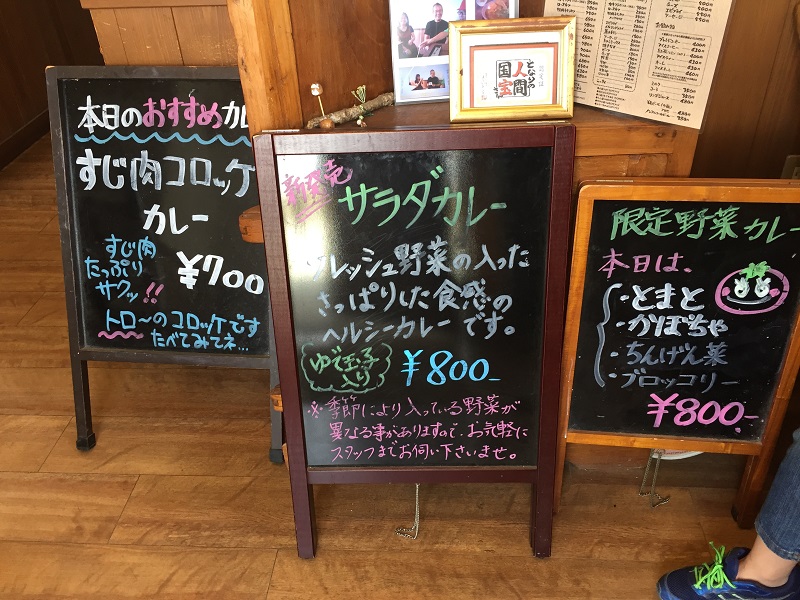 本日のおすすめカレ
すじ肉コロッケ
カレー
¥700
すじ肉
たっぷり
サクッ!!
トロ〜のコロッケです
たべてみてネ…
新発売
サラダカレー
フレッシュ野菜の入った
さっぱりした食感の
ヘルシーカレーです。
ゆで玉子
入り
¥800-
※季節により入っている野菜が
異なる事がありますので、お気軽に
スタッフまでお伺い下さいませ。
となりの
人間
国宝
限定野菜カレー
本日は、
・とまと
・かぼちゃ
・ちんげん菜
・ブロッコリー
¥800-